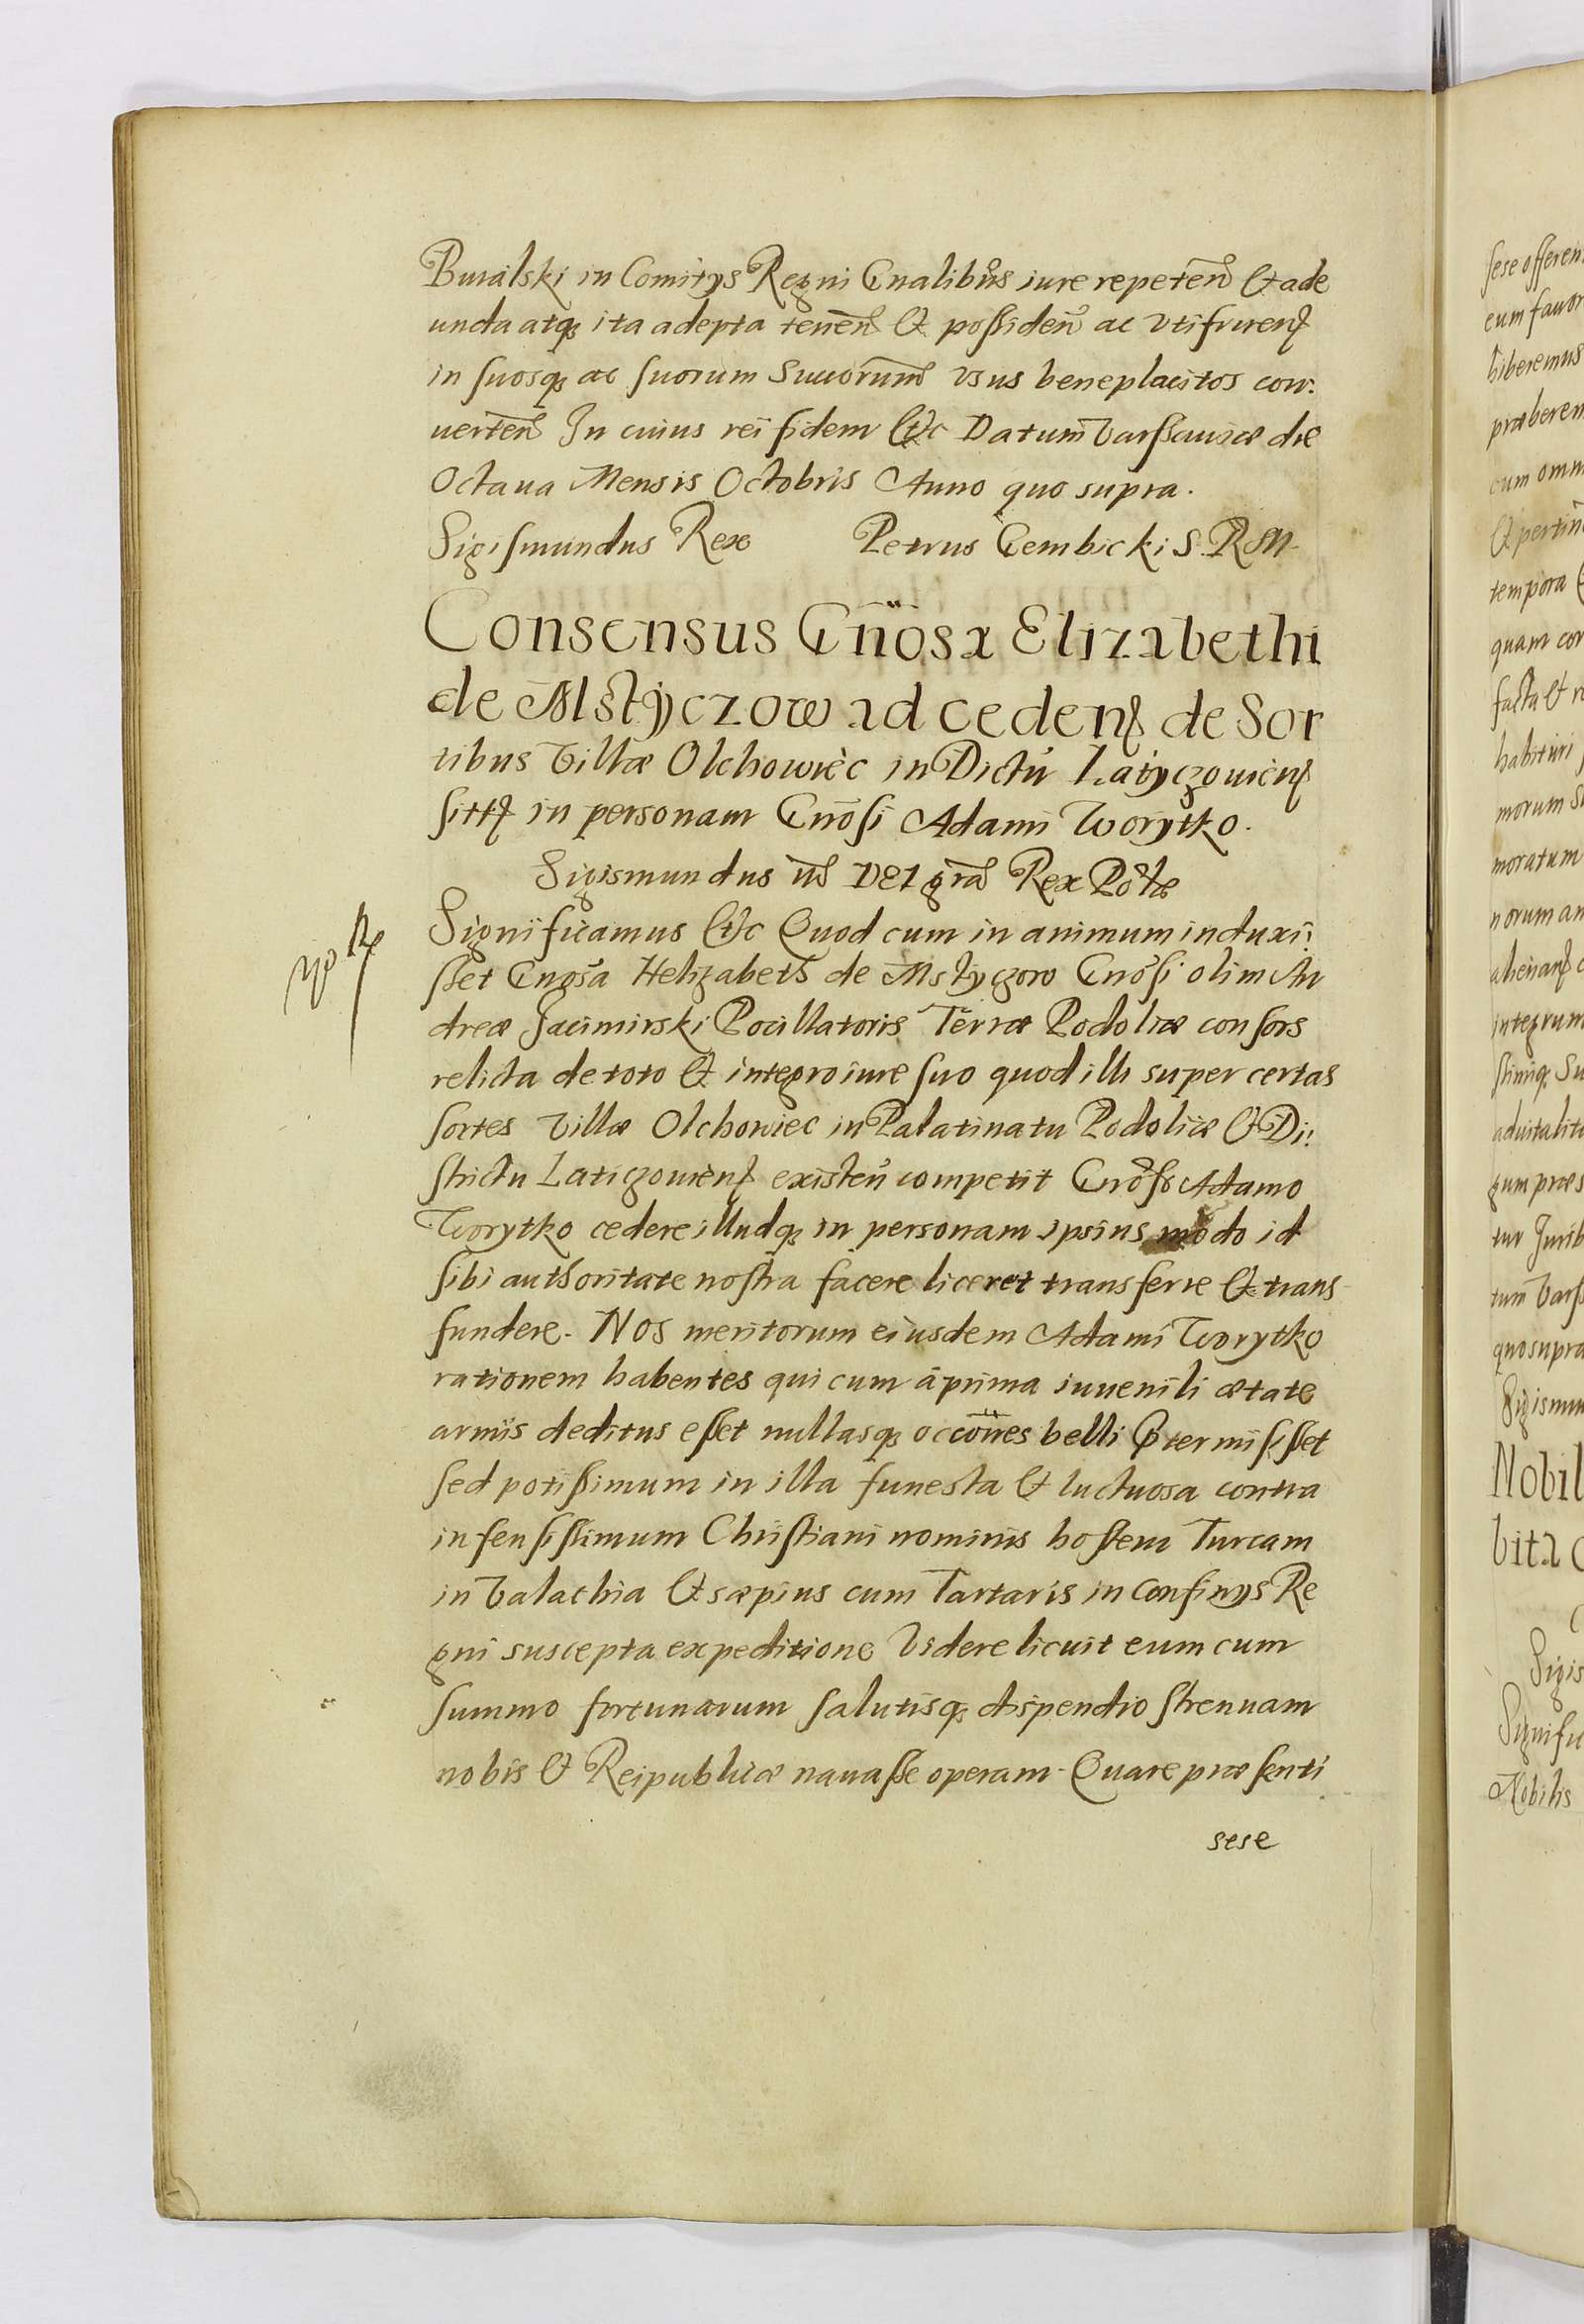 Buralski in Comitys Regni Gnalibus iure repeten̄ Et ade
unda atq; ita adepta tenen̄ Et possiden̄ ac vtifruen̄
in suosq; ac suorum Succorum usus beneplacitos con-
uerten̄ In cuius rei fidem Etc Datum Varssauiæ die
Octaua Mensis Octobris Anno quo supra.
Sigismundus Rex Petrus Gembicki S. R M
Consensus Gn̄osæ Elizabethi
de Mstyczow ad ceden̄ de Sor
tibus Villæ Olchowiec in Dictu Latyczouien̄
sitt in personam Gn̄osi Adami Worytko.
Sigismundus iiis DEI gra Rex Polæ
Significamus Etc Quod cum in animum induxi-
sset Gnosa Helizabeth de Mstyczow Gnosi olim An
dreæ Jacimirski Pocillatoris Terræ Podoliæ consors
relicta de toto Et integro iure suo quod illi super certas
sortes Villæ Olchowiec in Palatinatu Podoliæ Et Di-
strictu Laticzouien̄ existen̄ competit Gnoso Adamo
Worytko cedere illudq; in personam ipsius modo id
sibi authoritate nostra facere liceret transferre Et trans
fundere. Nos meritorum eiusdem Adami Worytko
rationem habentes qui cum à prima iuuenili ætate
armis deditus esset nullasq; occones belli prtermisisset
sed potissimum in illa funesta Et luctuosa contra
infensissimum Christiani nominis hostem Turcam
in Valachia Et sæpius cum Tartaris in Confinys Re
gni suscepta expeditione Videre licuit eum cum
summo fortunarum salutisq; dispendio strenuam
nobis Et Reipublicæ nauasse operam. Quare præsenti
sese
sese offeren
eum fauor
hiberemus
præberem
cum omni
Et pertin
tempora
quam con
facta Et
habituri
morum
moratum
norum an
alienan
integrum
stimq; Su
aduitalita
gum præs
tur Jurib
tum Vars
quo supra
Sigismun
Nobil
bita
Sigis
Signific
Nobilis